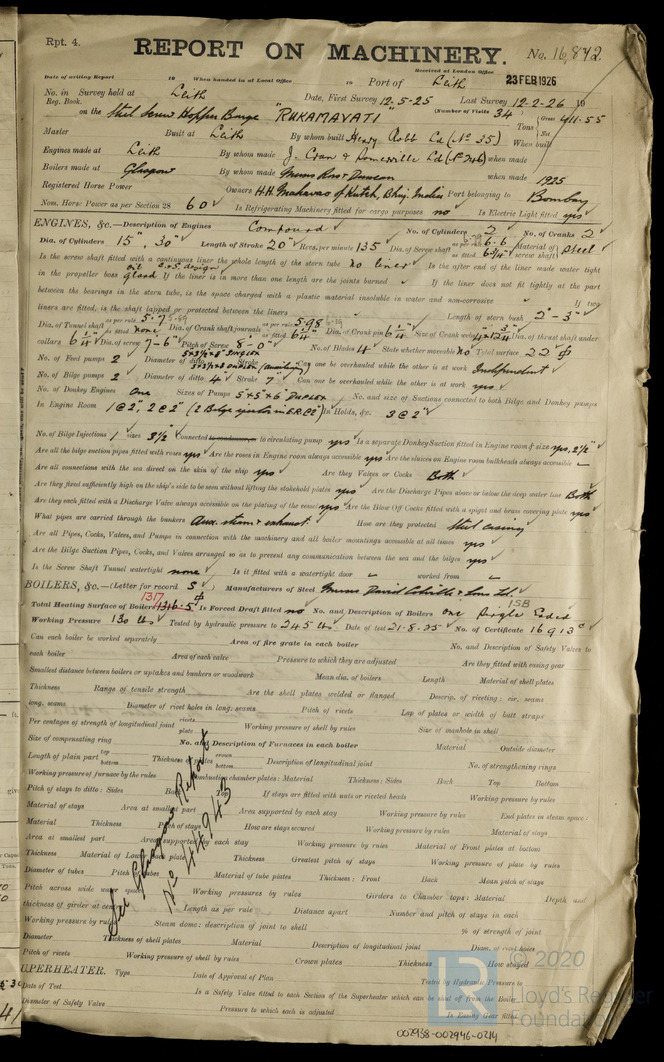 Rpt. 4.
REPORT ON MACHINERY. No. 16,872
Date of writing Report 19 When handed in at Local Office 19 Port of Leith
Received at London Office 23 FEB 1926
No. in Reg. Book. Survey held at Leith Date, First Survey 12.5.25 Last Survey 12-2-26 19
(Number of Visits 34
on the Steel Screw Hopper Barge "RUKAMAVATI" Tons Gross 411.55 Net
Master Built at Leith By whom built Henry Robb Ld (No 35) When built
Engines made at Leith By whom made J. Cran & Somerville Ld (No 246) when made
Boilers made at Glasgow By whom made Messrs Ross & Duncan when made 1925
Registered Horse Power Owners H.H. Maharao of Kutch, Bhuj, India Port belonging to Bombay
Nom. Horse Power as per Section 28 60 Is Refrigerating Machinery fitted for cargo purposes no Is Electric Light fitted yes
ENGINES, &c.—Description of Engines Compound No. of Cylinders 2 No. of Cranks 2
Dia. of Cylinders 15", 30" Length of Stroke 20" Revs. per minute 135 Dia. of Screw shaft as per rule 6.6 as fitted 6 3/4" Material of screw shaft steel
Is the screw shaft fitted with a continuous liner the whole length of the stern tube no liner Is the after end of the liner made water tight
in the propeller boss If the liner is in more than one length are the joints burned If the liner does not fit tightly at the part
between the bearings in the stern tube, is the space charged with a plastic material insoluble in water and non-corrosive If two
liners are fitted, is the shaft lapped or protected between the liners Length of stern bush 2'-3"
Dia. of Tunnel shaft as per rule 5.7 as fitted none Dia. of Crank shaft journals as per rule 5.98 as fitted 6 1/4" Dia. of Crank pin 6 1/4" Size of Crank webs Dia. of thrust shaft under
collars 6 1/4" Dia. of screw 7'-6" Pitch of Screw 8'-0" No. of Blades 4 State whether moveable no Total surface 22
No. of Feed pumps 2 Diameter of ditto Stroke Can one be overhauled while the other is at work Independent
No. of Bilge pumps 2 Diameter of ditto 4" Stroke 7" Can one be overhauled while the other is at work yes
No. of Donkey Engines One Sizes of Pumps 5"x5"x6" DUPLEX No. and size of Suctions connected to both Bilge and Donkey pumps
In Engine Room 1 @ 2", 2 @ 2" In Holds, &c. 3 @ 2"
No. of Bilge Injections 1 sizes 3 1/2" Connected to circulating pump yes Is a separate Donkey Suction fitted in Engine room & size yes, 2 1/2"
Are all the bilge suction pipes fitted with roses yes Are the roses in Engine room always accessible yes Are the sluices on Engine room bulkheads always accessible
Are all connections with the sea direct on the skin of the ship yes Are they Valves or Cocks Both
Are they fixed sufficiently high on the ship's side to be seen without lifting the stokehold plates yes Are the Discharge Pipes above or below the deep water line Both
Are they each fitted with a Discharge Valve always accessible on the plating of the vessel yes Are the Blow Off Cocks fitted with a spigot and brass covering plate yes
What pipes are carried through the bunkers Aux. steam & exhaust. How are they protected Steel casing
Are all Pipes, Cocks, Valves, and Pumps in connection with the machinery and all boiler mountings accessible at all times yes
Are the Bilge Suction Pipes, Cocks, and Valves arranged so as to prevent any communication between the sea and the bilges yes
Is the Screw Shaft Tunnel watertight none Is it fitted with a watertight door worked from
BOILERS, &c.—(Letter for record S) Manufacturers of Steel Messrs David Colville & Sons Ld.
Total Heating Surface of Boilers 1317 1316.5 Is Forced Draft fitted no No. and Description of Boilers One Single Ended 1SB
Working Pressure 130 lbs Tested by hydraulic pressure to 245 lbs Date of test 21-8-25 No. of Certificate 16913
Can each boiler be worked separately Area of fire grate in each boiler No. and Description of Safety Valves to
each boiler Area of each valve Pressure to which they are adjusted Are they fitted with easing gear
Smallest distance between boilers or uptakes and bunkers or woodwork Mean dia. of boilers Length Material of shell plates
Thickness Range of tensile strength Are the shell plates welded or flanged Descrip. of riveting: cir. seams
long. seams Diameter of rivet holes in long. seams Pitch of rivets Lap of plates or width of butt straps
Per centages of strength of longitudinal joint rivets plate Working pressure of shell by rules Size of manhole in shell
Size of compensating ring No. and Description of Furnaces in each boiler Material Outside diameter
Length of plain part top bottom Thickness of plates crown bottom Description of longitudinal joint No. of strengthening rings
Working pressure of furnace by the rules Combustion chamber plates: Material Thickness: Sides Back Top Bottom
Pitch of stays to ditto: Sides Back Top If stays are fitted with nuts or riveted heads Working pressure by rules
Material of stays Area at smallest part Area supported by each stay Working pressure by rules End plates in steam space:
Material Thickness Pitch of stays How are stays secured Working pressure by rules Material of stays
Area at smallest part Area supported by each stay Working pressure by rules Material of Front plates at bottom
Thickness Material of Lower back plate Thickness Greatest pitch of stays Working pressure of plate by rules
Diameter of tubes Pitch of tubes Material of tube plates Thickness: Front Back Mean pitch of stays
Pitch across wide water spaces Working pressures by rules Girders to Chamber tops: Material Depth and
thickness of girder at centre Length as per rule Distance apart Number and pitch of stays in each
Working pressure by rules Steam dome: description of joint to shell % of strength of joint
Diameter Thickness of shell plates Material Description of longitudinal joint Diam. of rivet holes
Pitch of rivets Working pressure of shell by rules Crown plates Thickness How stayed
See Glasgow Report
No 44945
SUPERHEATER. Type Date of Approval of Plan Tested by Hydraulic Pressure to
Date of Test Is a Safety Valve fitted to each Section of the Superheater which can be shut off from the Boiler
Diameter of Safety Valve Pressure to which each is adjusted Is Easing Gear fitted
© 2020
Lloyd's Register
Foundation
002938-002946-0214